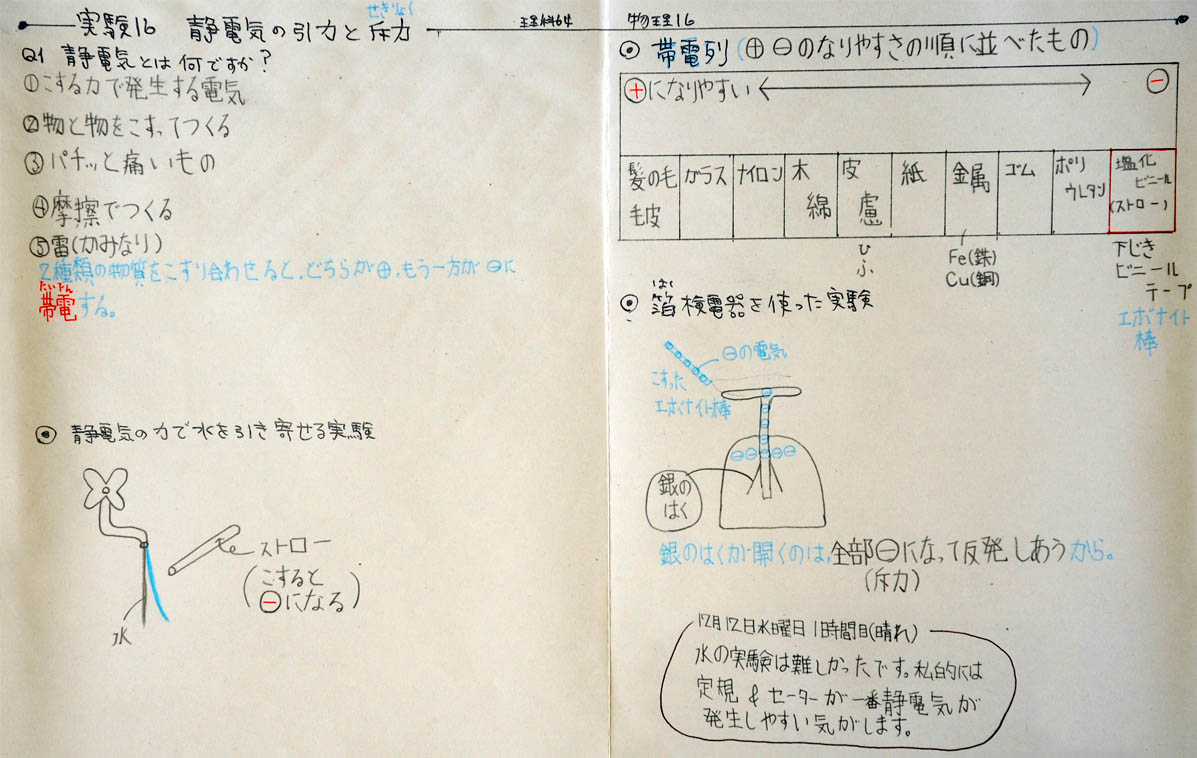 実験16 静電気の引力と斥力
せきりょく
理科64
Q1 静電気とは何ですか?
①こする力で発生する電気
②物と物をこすってつくる
③パチッと痛いもの
④摩擦でつくる
⑤雷(かみなり)
2種類の物質をこすり合わせると、どちらが⊕、もう一方が⊖に
たいでん
帯電する。
◉ 静電気の力で水を引き寄せる実験
ストロー
(こすると
⊖になる)
水
物理16
◉ 帯電列(⊕⊖のなりやすさの順に並べたもの)
⊕になりやすい ⊖
髪の毛 毛皮
ガラス
ナイロン
木綿
皮慮
紙
金属
ゴム
ポリウレタン
塩化ビニール(ストロー)
ひふ
Fe(鉄)
Cu(銅)
下じき
ビニール
テープ
エボナイト
棒
はく
◉ 箔検電器を使った実験
⊖の電気
こすった
エボナイト棒
銀の
はく
銀のはくが開くのは、全部⊖になって反発しあうから。
(斥力)
12月12日水曜日1時間目(晴れ)
水の実験は難しかったです。私的には
定規&セーターが一番静電気が
発生しやすい気がします。